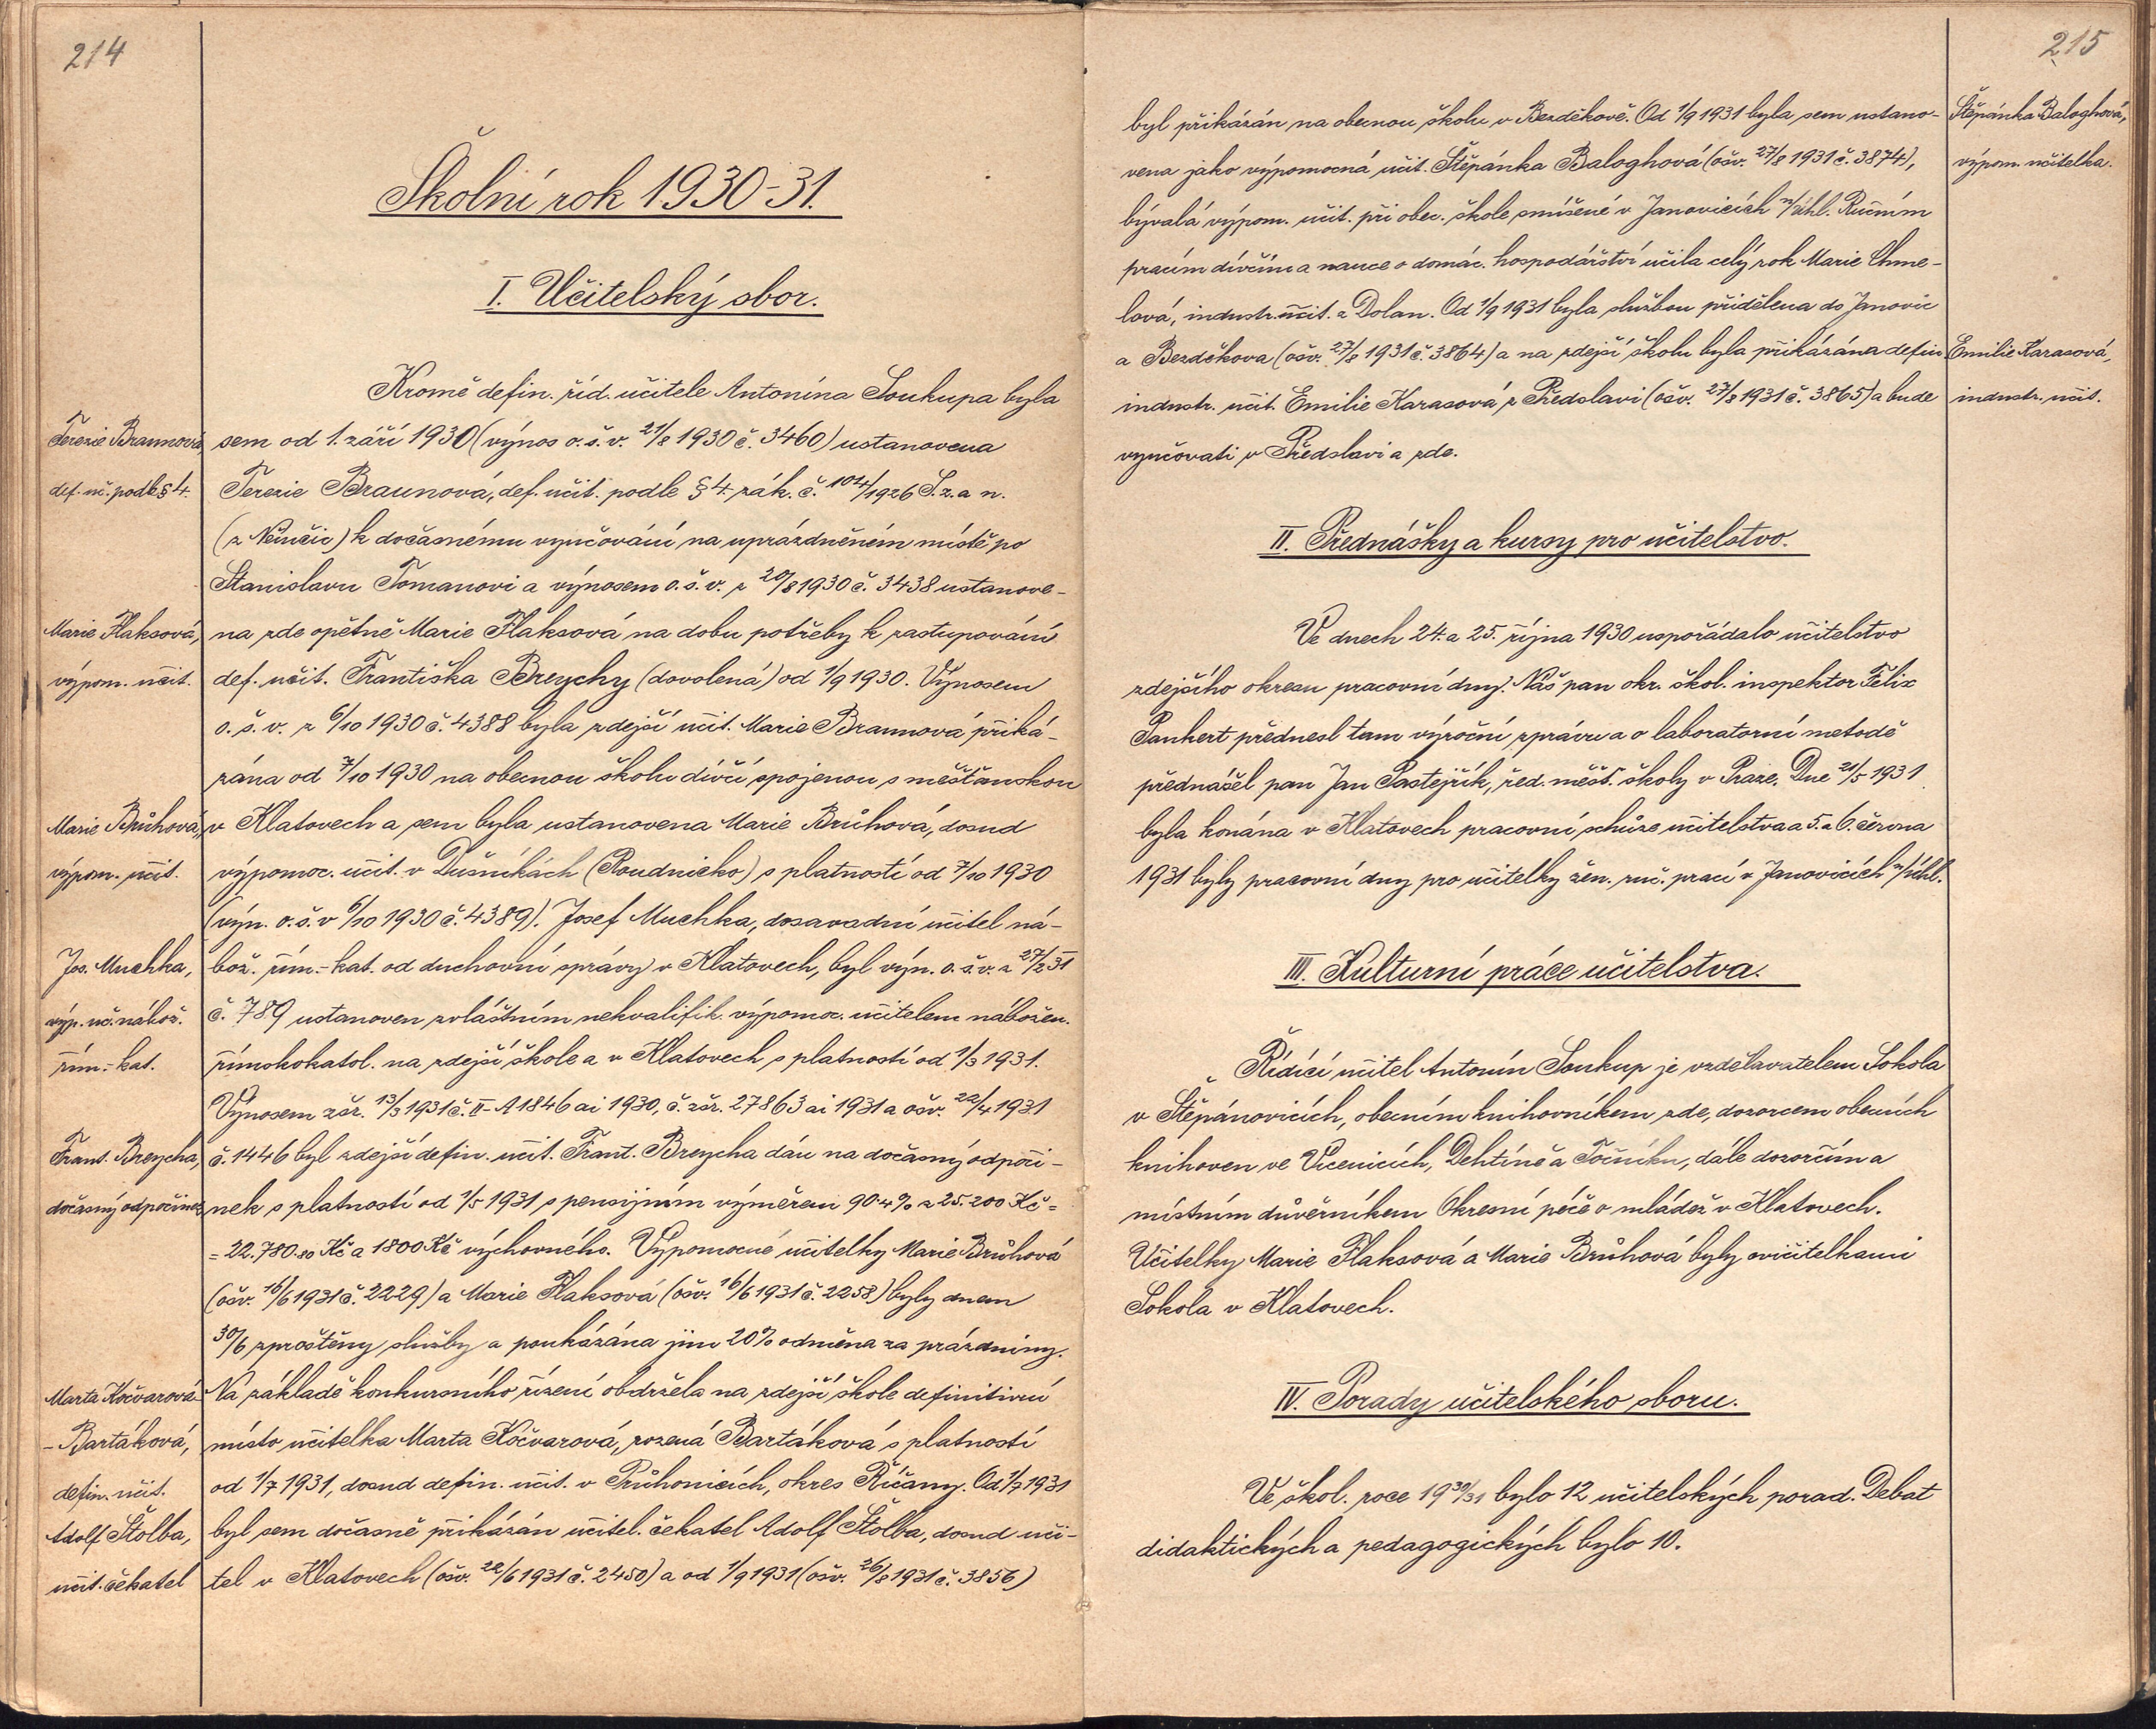 214
Školní rok 1930-31.
I. Učitelský sbor.
Kromě defin. říd. učitele Antonína Soukupa byla
Terezie Braunová, sem od 1. září 1930 (výnos o. š. v. 21/8 1930 č. 3460) ustanovena
def. uč. podle § 4. Terezie Braunová, def. učit. podle § 4. zák. č. 104/1926 S. z. a n.
(z Němčic) k dočasnému vyučování na uprázdněném místě po
Stanislavu Tomanovi a výnosem o. š. v. z 20/8 1930 č. 3438 ustanove-
Marie Flaksová, na zde opětně Marie Flaksová na dobu potřeby k zastupování
výpom. učit. def. učit. Františka Breychy (dovolená) od 1/9 1930. Výnosem
o. š. v. z 6/10 1930 č. 4388 byla zdejší učit. Marie Braunová přiká-
zána od 7/10 1930 na obecnou školu dívčí spojenou s měšťanskou
Marie Brůhová, v Klatovech a sem byla ustanovena Marie Brůhová, dosud
výpom. učit. výpomoc. učit. v Dušníkách (Roudnicko) s platností od 7/10 1930
(výn. o. š. v 6/10 1930 č. 4389). Josef Muchka, dosavadní učitel ná-
Jos. Muchka, bož. řím.-kat. od duchovní správy v Klatovech, byl výn. o. š. v. z 27/2 31
výp. uč. nábož. č. 789 ustanoven zvláštním nekvalifik. výpomoc. učitelem nábožen.
řím.-kat. římskokatol. na zdejší škole a v Klatovech s platností od 1/3 1931.
Výnosem zšr. 13/3 1931 č. II-A 1846 ai 1930, č. zšr. 27863 ai 1931 a ošv. 22/4 1931
Frant. Breycha, č. 1446 byl zdejší defin. učit. Frant. Breycha dán na dočasný odpoči-
dočasný odpočinek nek s platností od 1/5 1931 s pensijním výměrem 90·4% z 25.200 Kč =
= 22.780.80 Kč a 1800 Kč výchovného. Výpomocné učitelky Marie Brůhová
(ošv. 16/6 1931 č. 2229) a Marie Flaksová (ošv. 16/6 1931 č. 2258) byly dnem
30/6 zproštěny služby a poukázána jim 20% odměna za prázdniny.
Marta Kočvarová- Na základě konkursního řízení obdržela na zdejší škole definitivní
-Bartáková, místo učitelka Marta Kočvarová, rozená Bartáková s platností
defin. učit. od 1/7 1931, dosud defin. učit. v Průhonicích, okres Říčany. Od 1/7 1931
Adolf Štolba, byl sem dočasně přikázán učitel. čekatel Adolf Štolba, dosud uči-
učit. čekatel tel v Klatovech (ošv. 22/6 1931 č. 2450) a od 1/9 1931 (ošv. 26/8 1931 č. 3856)
215
byl přikázán na obecnou školu v Bezděkově. Od 1/9 1931 byla sem ustano- Štěpánka Baloghová,
vena jako výpomocná učit. Štěpánka Baloghová (ošv. 27/8 1931 č. 3874), výpom. učitelka.
bývalá výpom. učit. při obec. škole smíšené v Janovicích n/Úhl. Ručním
pracím dívčím a nauce o domác. hospodářství učila celý rok Marie Chme-
lová, industr. učit. z Dolan. Od 1/9 1931 byla službou přidělena do Janovic
a Bezděkova (ošv. 27/8 1931 č. 3864) a na zdejší školu byla přikázána defin. Emilie Karasová,
industr. učit. Emilie Karasová z Předslavi (ošv. 27/8 1931 č. 3865) a bude industr. učit.
vyučovati v Předslavi a zde.
II. Přednášky a kursy pro učitelstvo.
Ve dnech 24. a 25. října 1930 uspořádalo učitelstvo
zdejšího okresu pracovní dny. Náš pan okr. škol. inspektor Felix
Pankert přednesl tam výroční zprávu a o laboratorní metodě
přednášel pan Jan Pastejřík, řed. měšť. školy v Praze. Dne 21/5 1931
byla konána v Klatovech pracovní schůze učitelstva a 5. a 6. června
1931 byly pracovní dny pro učitelky žen. ruč. prací v Janovicích n/Úhl.
III. Kulturní práce učitelstva.
Řídící učitel Antonín Soukup je vzdělavatelem Sokola
v Štěpánovicích, obecním knihovníkem zde, dozorcem obecních
knihoven ve Vícenicích, Dehtíně a Točníku, dále dozorčím a
místním důvěrníkem Okresní péče o mládež v Klatovech.
Učitelky Marie Flaksová a Marie Brůhová byly cvičitelkami
Sokola v Klatovech.
IV. Porady učitelského sboru.
Ve škol. roce 1930/31 bylo 12 učitelských porad. Debat
didaktických a pedagogických bylo 10.